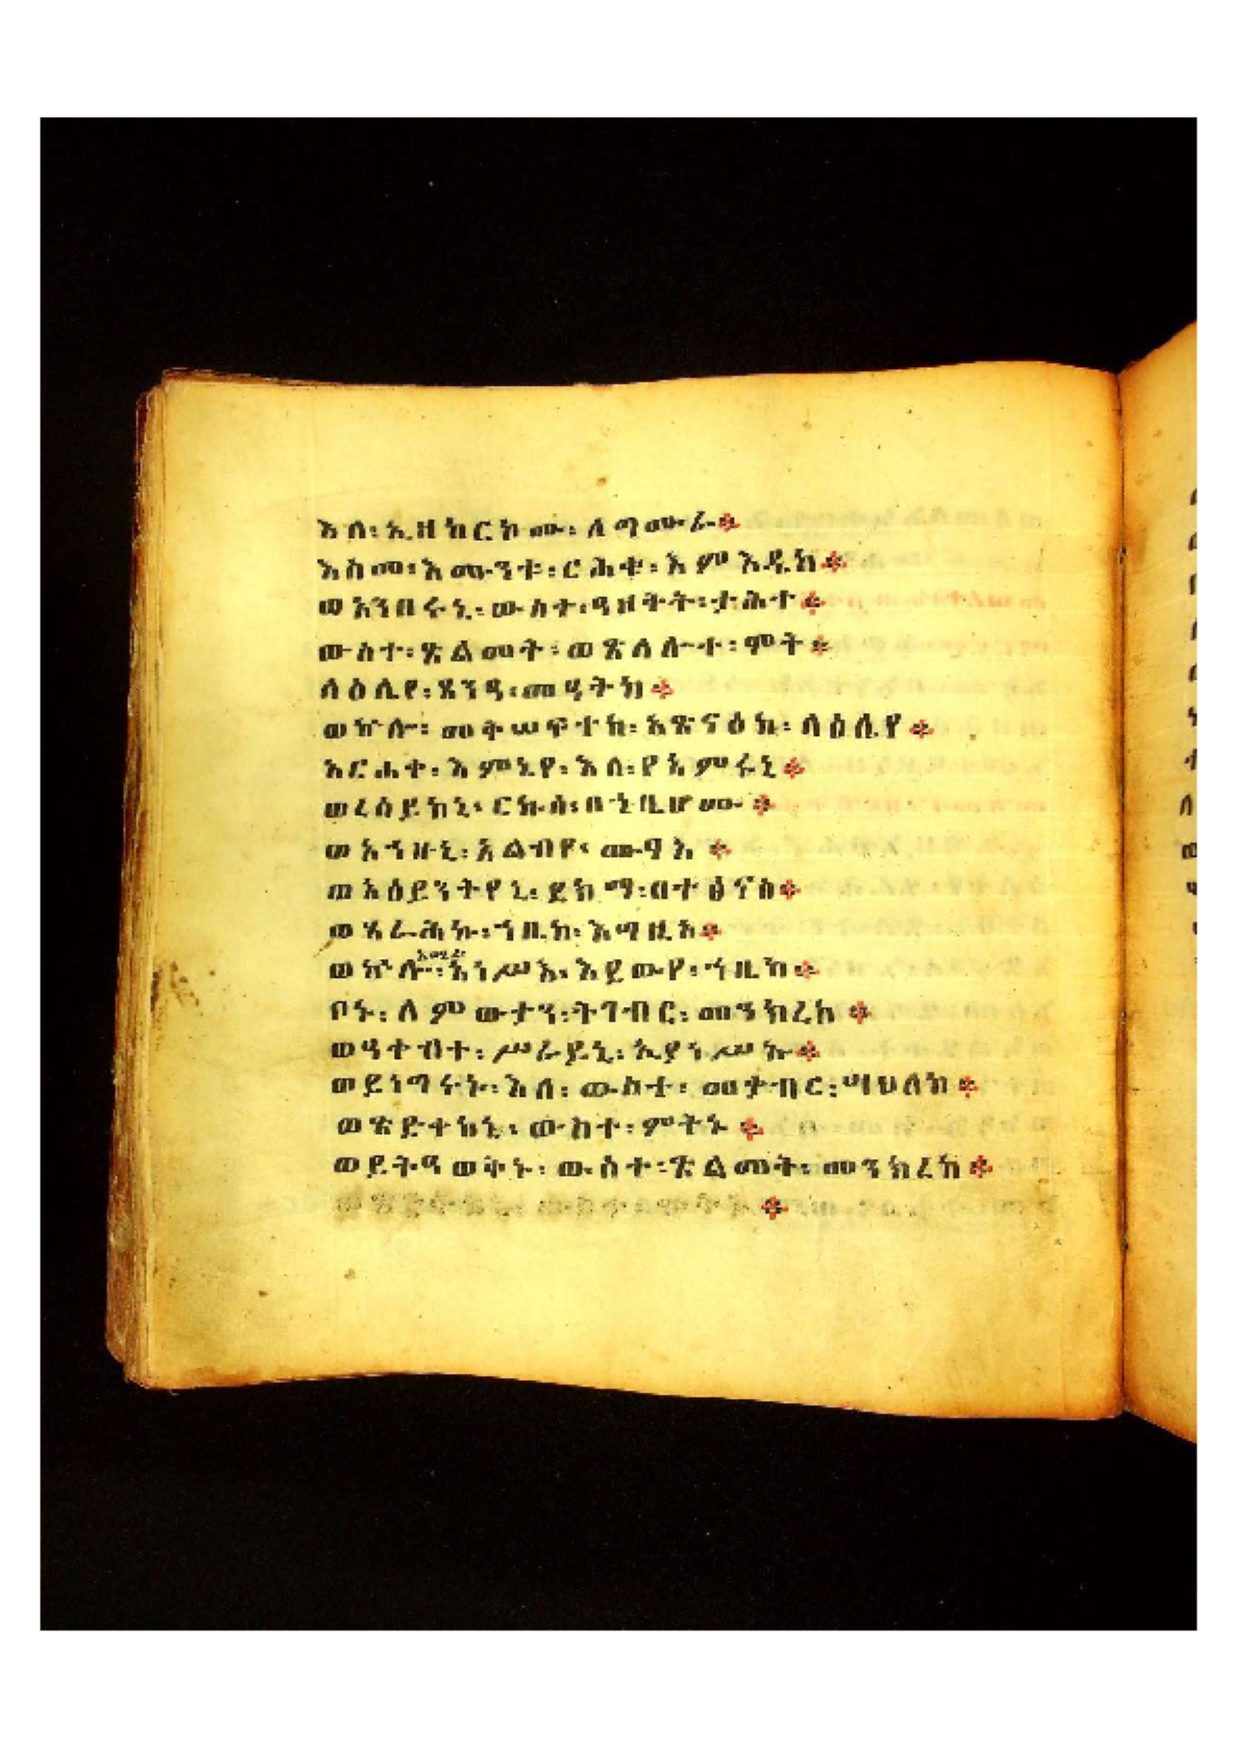 እለ፡ኢዘከርኮሙ፡ለግሙራ።
እስመ፡እሙንቱ፡ርሕቁ፡እምእዴከ።
ወአንበሩኒ፡ውስተ፡ዓዘቅት፡ታሕተ።
ውስተ፡ጽልመት፡ወጽላሎተ፡ሞት።
ላዕሌየ፡ጸንዓ፡መዓትከ።
ወኵሎ፡መቅሠፍተከ፡አጽናዕከ፡ላዕሌየ።
አርሐቀ፡እምኔየ፡እለ፡የአምሩኒ።
ወረሰይከኒ፡ርኩሰ፡በኀቤሆሙ።
ወአኀዙኒ፡አልብየ፡ሙፃእ።
ወአዕይንትየኒ፡ደክማ፡በተፅናስ።
ወጸራሕኩ፡ኀቤከ፡እግዚኦ።
ወኵሎ፡አሚረ፡አነሥእ፡እደውየ፡ኀቤከ።
ቦኑ፡ለምውታን፡ትገብር፡መንክረከ።
ወዓቀብተ፡ሥራይኒ፡ኢያነሥኡ።
ወይነግሩኑ፡እለ፡ውስተ፡መቃብር፡ሣህለከ።
ወጽድቀከኒ፡ውስተ፡ሞትኑ።
ወይትዓወቅኑ፡ውስተ፡ጽልመት፡መንክረከ።